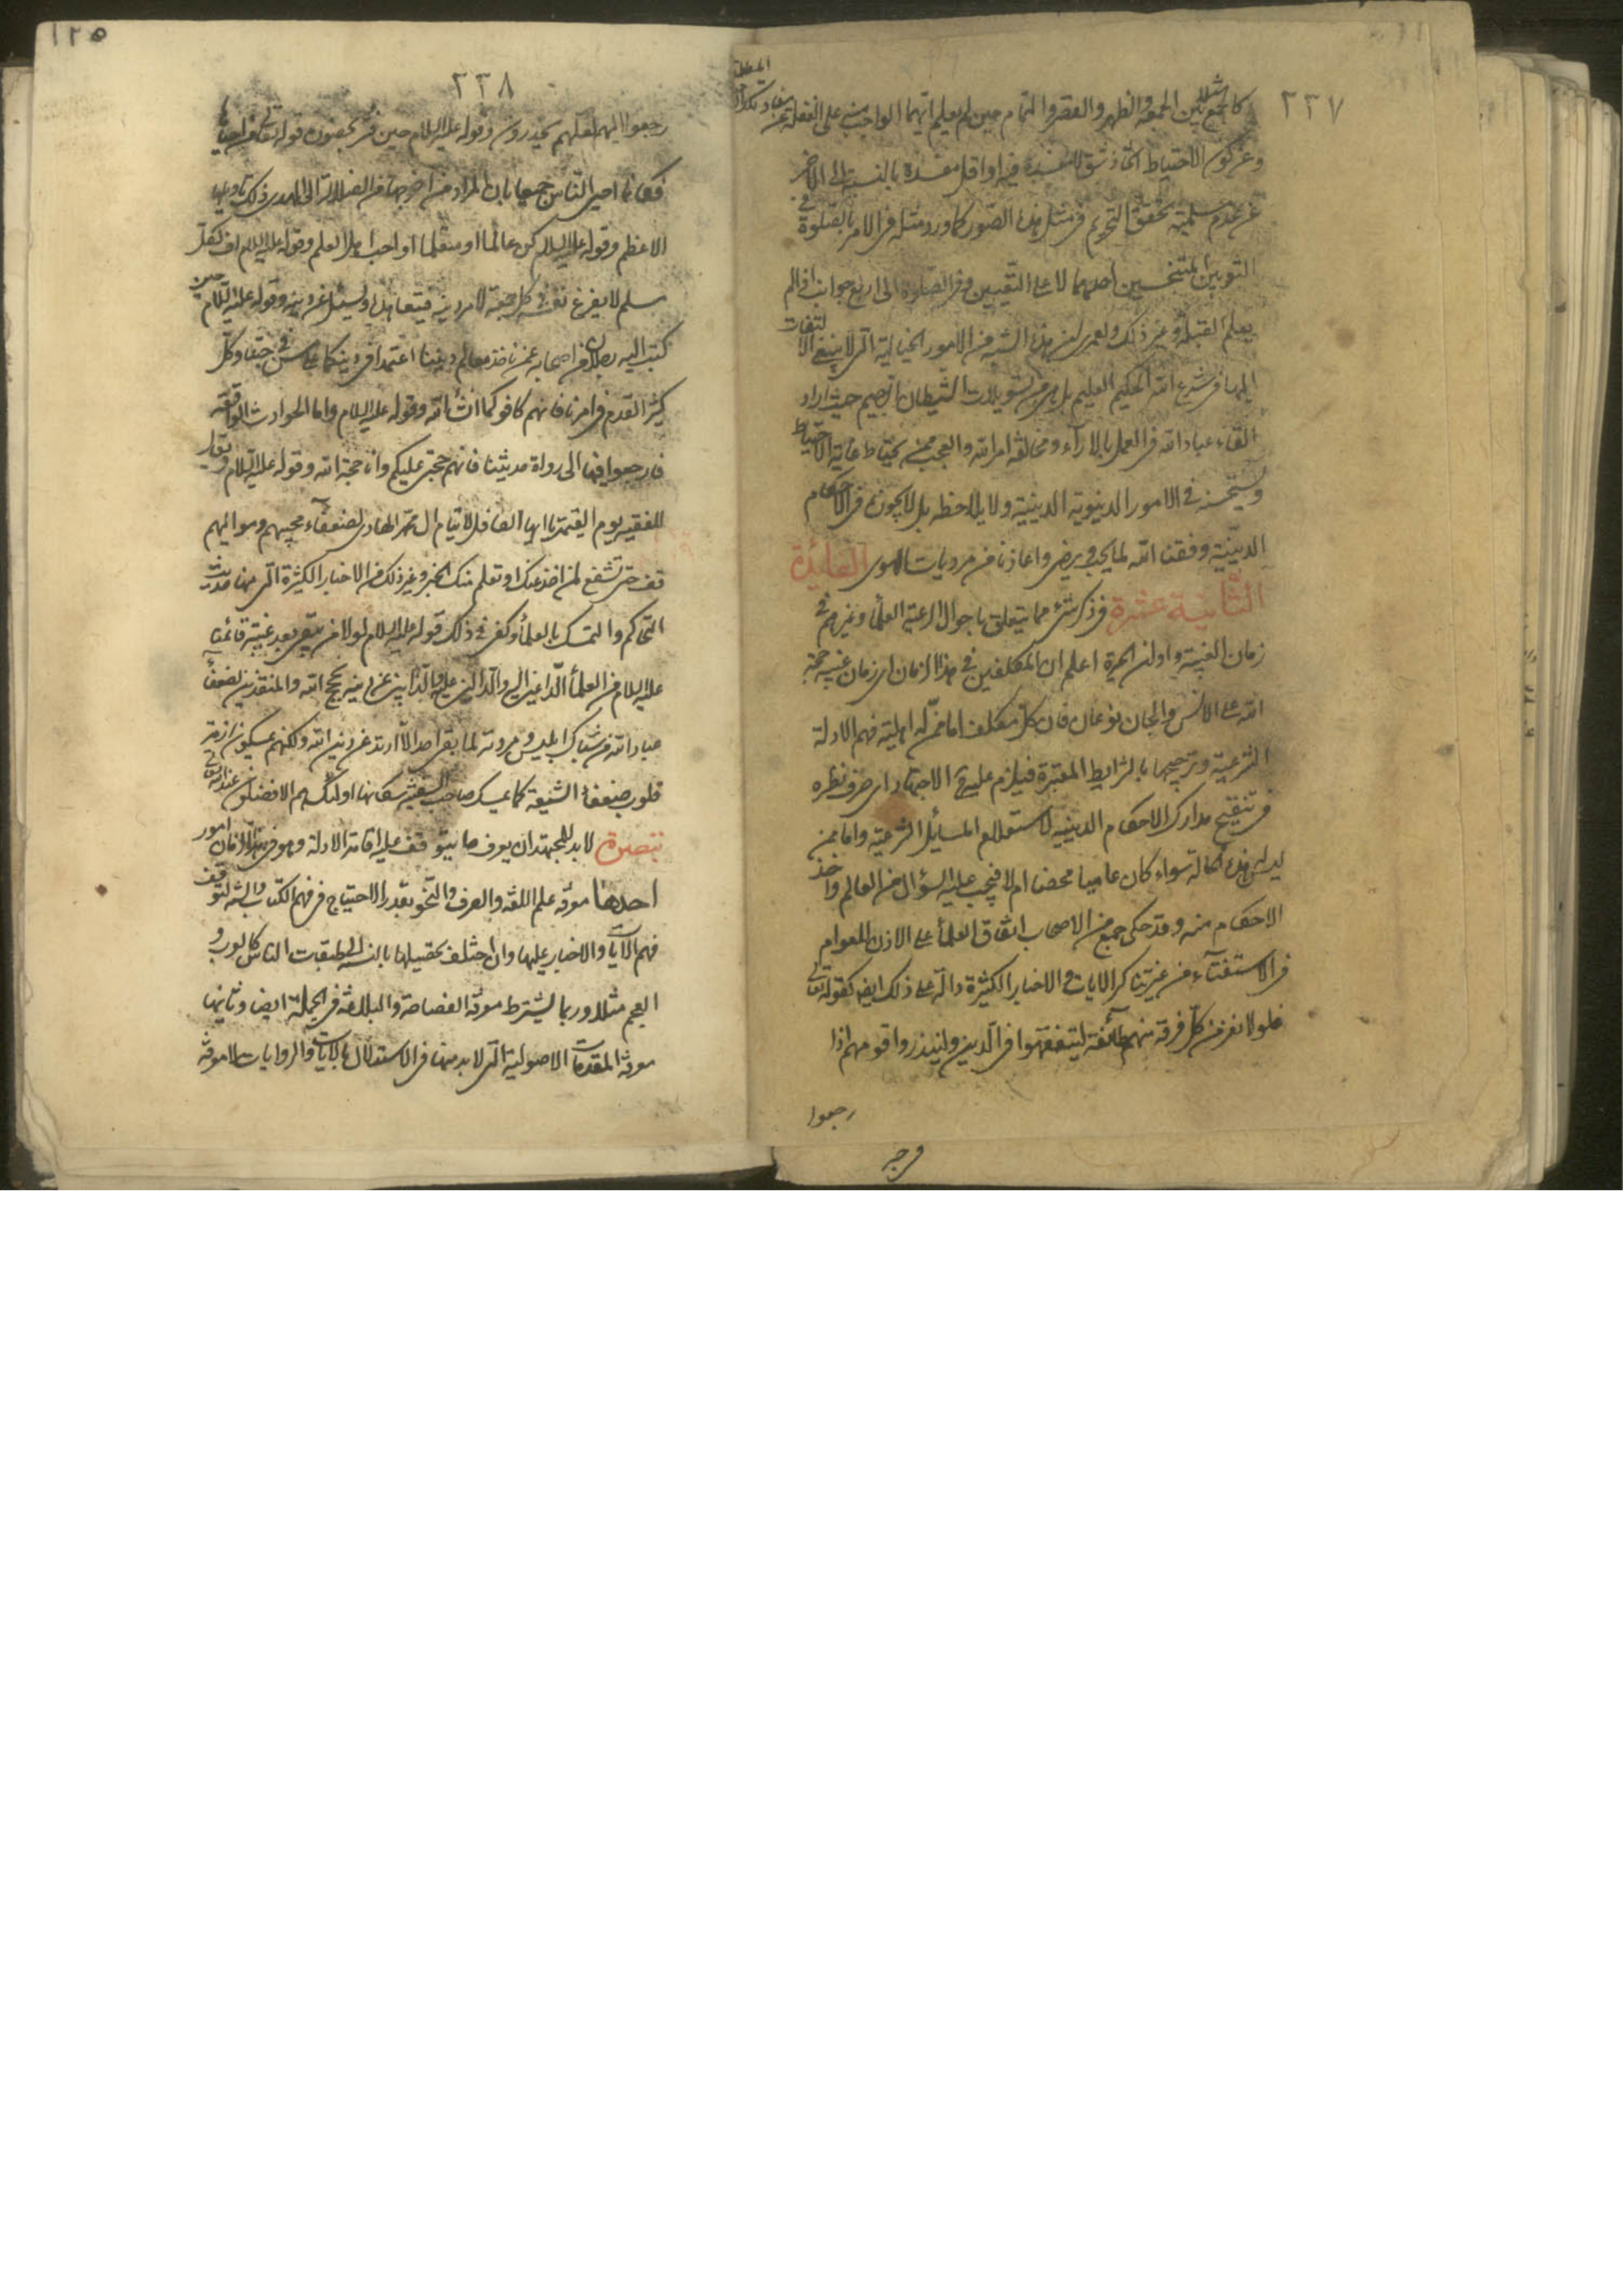 ٢٣٧
كالجمع مثلا بين الجمعة والظهر والقصر والتمام حين لم يعلم ايهما الواجب على الغفلة عن
وعن كون الاحتياط اتخاذ شق لا مفسدة فيه او اقل مفسدة بالنسبة الى الاخر
عن عدم تحقق التحريم فى مثل هذه الصور كما ورد مثله فى الامر بالصلوة فى
الثوبين المتنجسين احدهما لا على التعيين وفى الصلوة الى اربع جوانب اذا لم
يعلم القبلة وغير ذلك ولعمرى ان هذه الشبه من الامور الخيالية التى لا ينبغى الالتفات
اليها فى شرع الله الحكيم العليم بل هى من تسويلات الشيطان الرجيم حيث اراد
القاء عباد الله فى العمل بالاراء ومخالفة امر الله والعجب ممن يحتاط غاية الاحتياط
ويستحسنه فى الامور الدنيوية الدينية ولا يلاحظه بل لا يجوزه فى الاحكام
الدينية وفقنا الله لما يحب ويرضى واعاذنا من مرديات الهوى الفائدة
الثانية عشرة فى ذكر شىء مما يتعلق باحوال الرعية العلماء وغيرهم فى
زمان الغيبة واوان الحيرة اعلم ان المكلفين فى هذا الزمان اى زمان غيبة حجة
الله على الانس والجان نوعان فان كل مكلف اما ممن له اهلية فهم الادلة
الشرعية وترجيحها بالشرايط المعتبرة فيلزم عليه الاجتهاد اى صرف نظره
فى تنقيح مدارك الاحكام الدينية لاستعلام المسائل الشرعية واما ممن
ليس له هذه الحالة سواء كان عاميا محضا ام لا فيجب عليه السؤال من العالم واخذ
الاحكام منه وقد حكى جمع من الاصحاب اتفاق العلماء على الاذن للعوام
فى الاستفتاء من غير تناكر الايات و الاخبار الكثيرة دالة على ذلك ايضا كقوله تعالى
فلولا نفر من كل فرقة منهم طائفة ليتفقهوا فى الدين ولينذروا قومهم اذا
رجعوا
١٢٥
٢٣٨
رجعوا اليهم لعلهم يحذرون وقوله عليه السلام حين قوله تعالى
فكانما احيى الناس جميعا بان المراد من اخرجها من الضلالة الى الهدى ذلك تاويلها
الاعظم وقوله عليه السلام كن عالما او متعلما او احب اهل العلم وقوله عليه السلام اف لكل
مسلم لا يفرغ نفسه فى كل جمعة لامر دينه فيتعاهده ويسئل عن دينه وقوله عليه السلام حين
كتب اليه رجلان من اصحابه عمن ناخذ معالم ديننا اعتمدا فى دينكما على مسن فى حبنا وكل
كثير القدم فى امرنا فانهم كافوكما ان شاء الله وقوله عليه السلام واما الحوادث الواقعة
فارجعوا فيها الى رواة حديثنا فانهم حجتى عليكم وانا حجة الله وقوله عليه السلام ويقال
للفقيه يوم القيمة يا ايها الكافل لايتام ال محمد الهادى لضعفاء محبيهم ومواليهم
قف حتى تشفع لمن اخذ عنك او تعلم منك الخبر وغير ذلك من الاخبار الكثيرة التى منها حديث
التحاكم والتمسك بالعلماء وكفى فى ذلك قوله عليه السلام لولا من يبقى بعد غيبة قائمنا
عليه السلام من العلماء الداعين اليه والدالين عليه والذابين عن دينه بحجج الله والمنقذين لضعفاء
عباد الله من شباك ابليس ومردته لما بقى احد الا ارتد عن دين الله ولكنهم يمسكون ازمة
قلوب ضعفاء الشيعة كما يمسك صاحب السفينة سكانها اولئك هم الافضلون عند الله تعالى
تبصرة لا بد للمجتهد ان يعرف ما يتوقف عليه اقامة الادلة وهو فى هذا الزمان امور
احدها معرفة علم اللغة والصرف والنحو بقدر الاحتياج فى فهم الكتاب والسنة لتوقف
فهم الايات والاخبار عليها وان اختلف تحصيلها بالنسبة الى طبقات الناس كالعرب و
العجم مثلا وربما يشترط معرفة الفصاحة والبلاغة فى الجملة ايضا وثانيها
معرفة المقدمات الاصولية التى لا بد منها فى الاستدلال بالايات والروايات كمعرفة